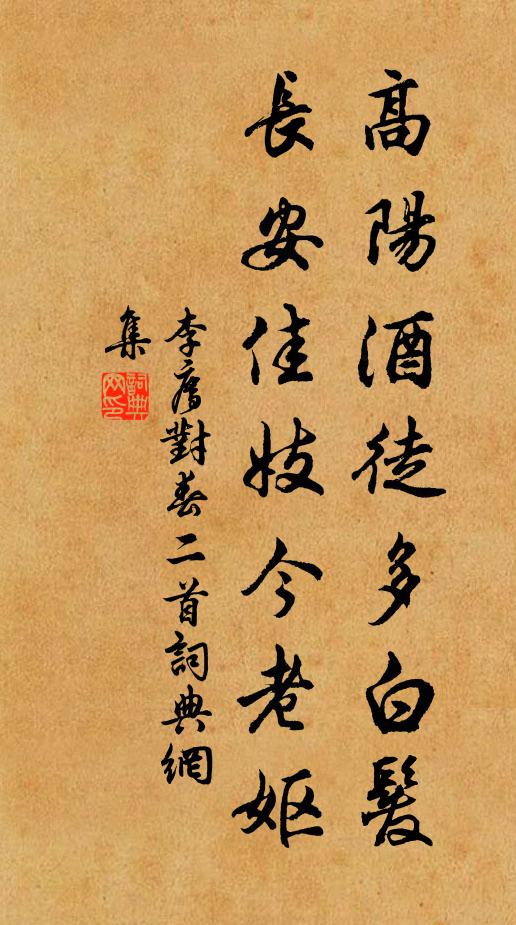 高陽酒徒多白髮
長安佳妓今老嫗
李廌對春二首詞典網
集
詞典
网印